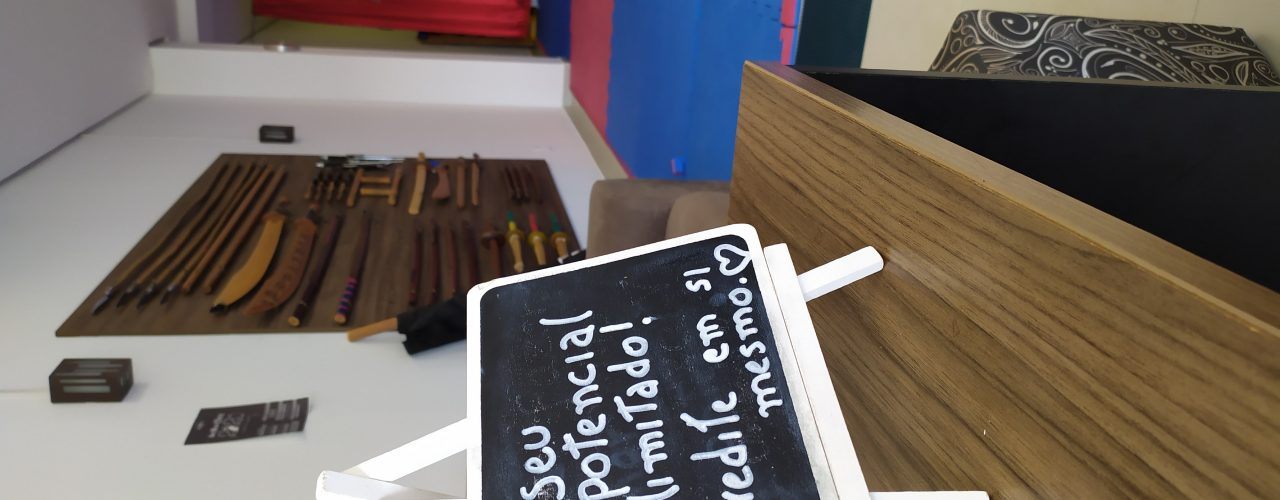 seu
potencial
limitado!
redite em si
mesmo.♡